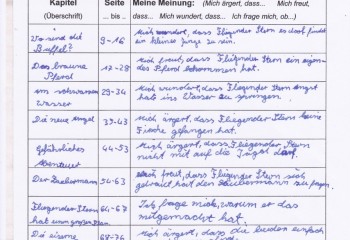 Kapitel Seite Meine Meinung: (Mich ärgert, dass... Mich freut,
(Überschrift) ... bis ... dass... Mich wundert, dass... Ich frage mich, ob...)
Wo sind die Büffel? 9-16 Mich wundert, dass Fliegender Stern es doof findet
ein kleiner Junge zu sein.
Das braune Pferd 17-28 Mich freut, dass Fliegender Stern ein eigenes
Pferd bekommen hat.
im schwarzen Wasser 29-34 Mich wundert, dass Fliegender Stern angst
hat ins Wasser zu springen.
Die neue Angel 35-43 Mich ärgert, dass Fliegender Stern keine
Fische gefangen hat.
Gefährliches Abenteuer 44-53 Mich ärgert, dass Fliegender Stern
nicht mit auf die Jagd darf.
Der Zaubermann 54-63 Mich freut, dass Fliegender Stern sich
getraut hat den Zaubermann zu fragen.
Fliegender Stern hat einen großen Plan 64-67 Ich frage mich, warum er das
mitgemacht hat.
Die eiserne 68-76 Mich ärgert, dass die beiden einfach